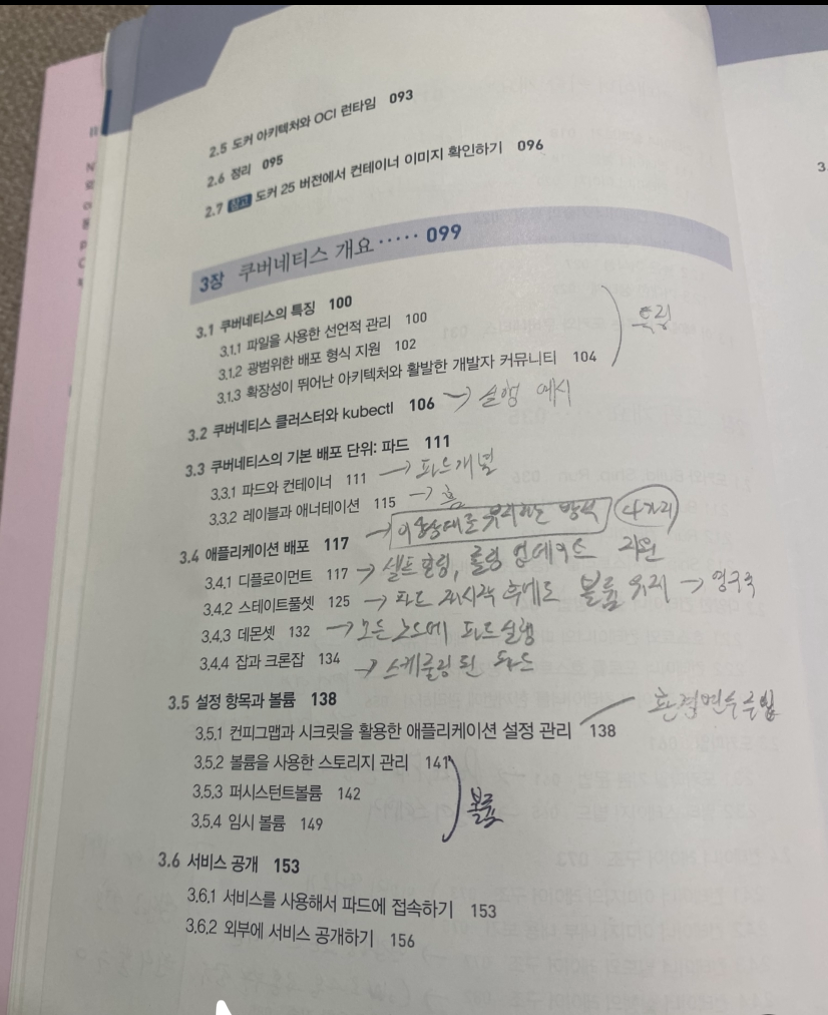 2.5 도커 아키텍처와 OCI 런타임 093
2.6 정리 095
2.7 참고 도커 25 버전에서 컨테이너 이미지 확인하기 096
3장 쿠버네티스 개요····· 099
3.1 쿠버네티스의 특징 100
3.1.1 파일을 사용한 선언적 관리 100
3.1.2 광범위한 배포 형식 지원 102
3.1.3 확장성이 뛰어난 아키텍처와 활발한 개발자 커뮤니티 104
특징
3.2 쿠버네티스 클러스터와 kubectl 106 → 실행 예시
3.3 쿠버네티스의 기본 배포 단위: 파드 111
3.3.1 파드와 컨테이너 111 → 파드개념
3.3.2 레이블과 애너테이션 115 →
3.4 애플리케이션 배포 117 → 이상상태를 유지하는 방식 4가지
3.4.1 디플로이먼트 117 → 셀프힐링, 롤링 업데이트 지원
3.4.2 스테이트풀셋 125 → 파드 재시작 후에도 볼륨 유지 → 영구적
3.4.3 데몬셋 132 → 모든 노드에 파드실행
3.4.4 잡과 크론잡 134 → 스케쥴링 된 파드
3.5 설정 항목과 볼륨 138
3.5.1 컨피그맵과 시크릿을 활용한 애플리케이션 설정 관리 138 환경변수주입
3.5.2 볼륨을 사용한 스토리지 관리 141
3.5.3 퍼시스턴트볼륨 142
3.5.4 임시 볼륨 149
볼륨
3.6 서비스 공개 153
3.6.1 서비스를 사용해서 파드에 접속하기 153
3.6.2 외부에 서비스 공개하기 156